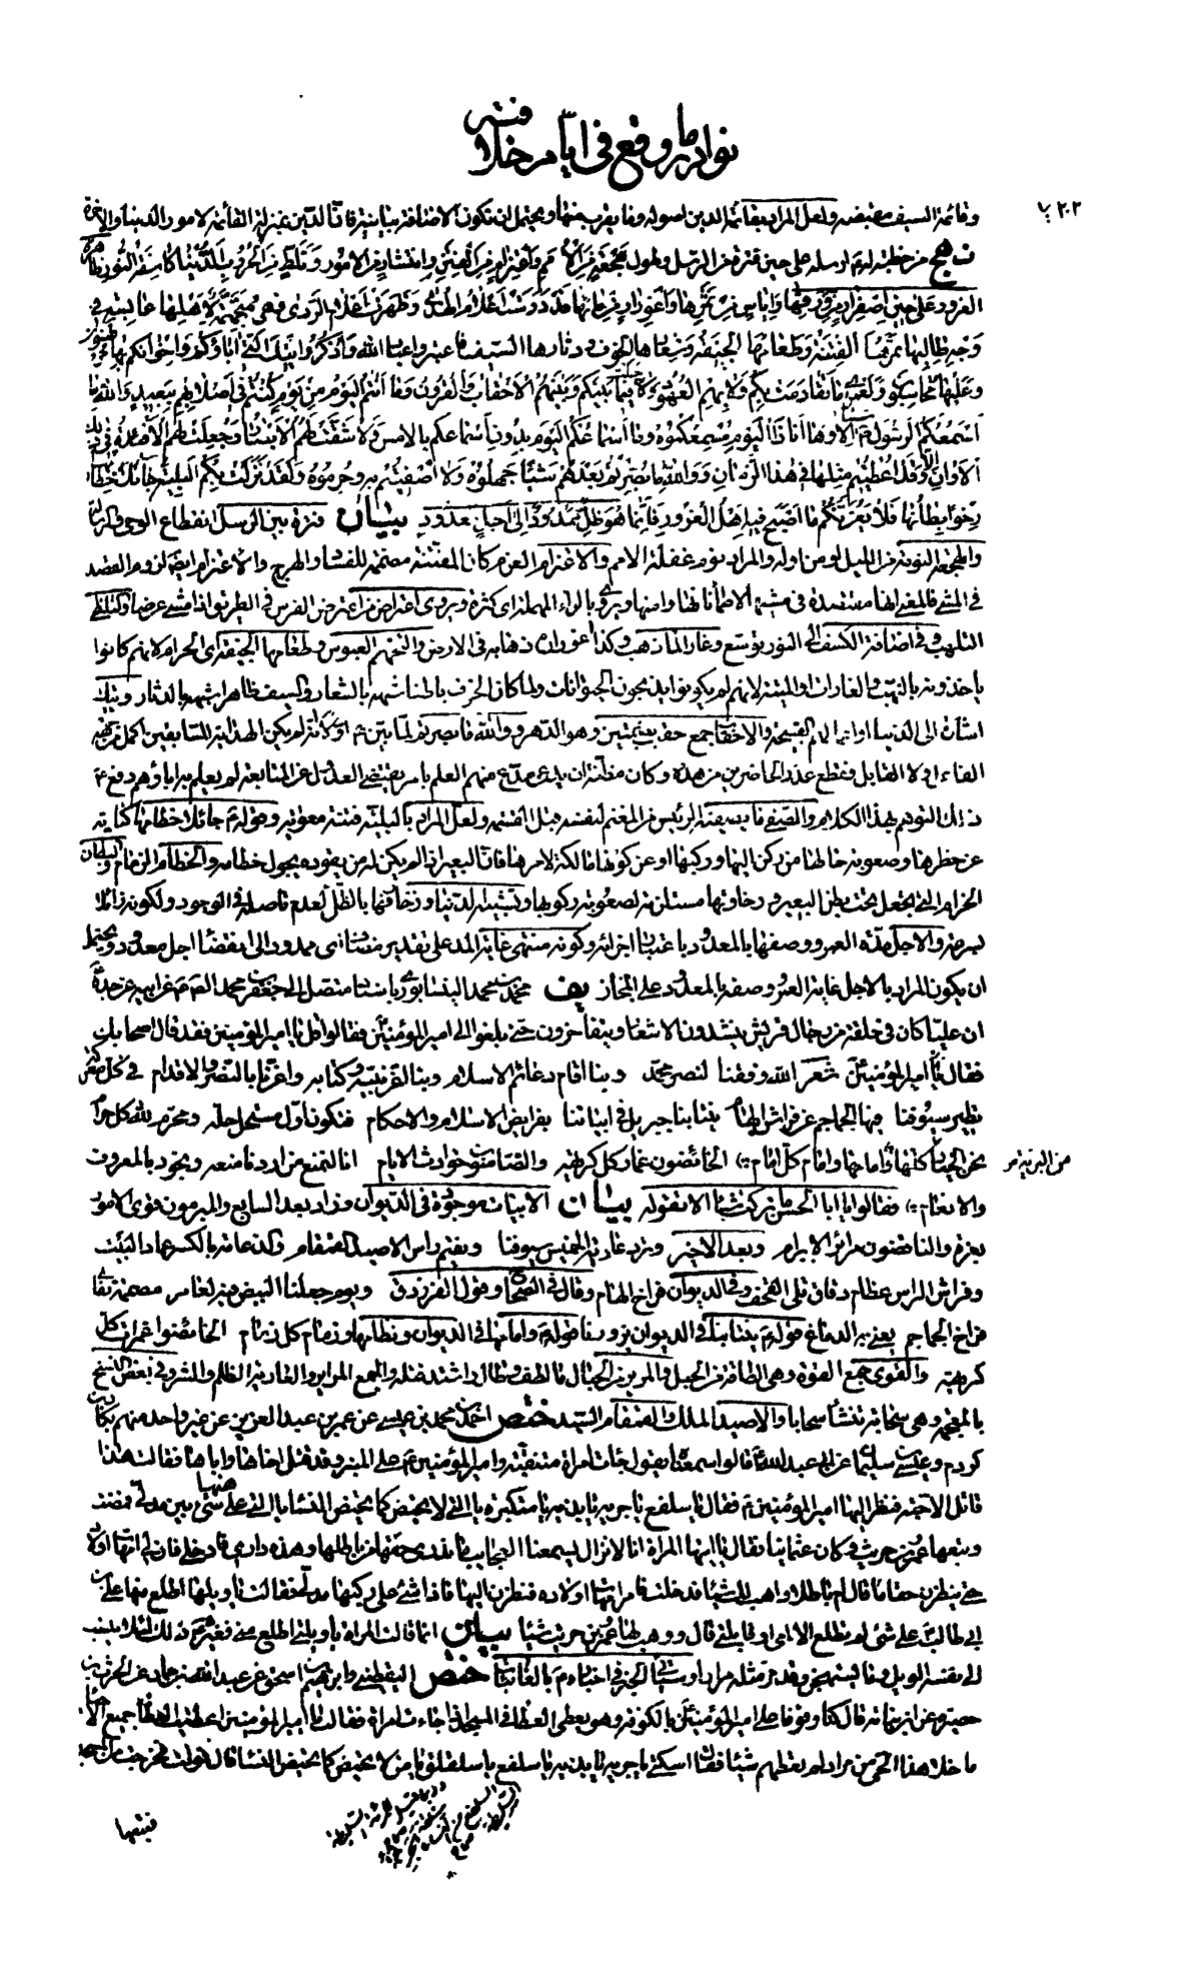 نوادر ما وقع في ايام خلافته
وقائمة السيف مقبضه ولعل المراد بقائمة الدين اصوله وما يقرب منها ويحتمل ان تكون الاضافة بيانية فان الدين بمنزلة القائمة لامور الدنيا والاخرة
نهج من خطبة له ارسله على حين فترة من الرسل وطول هجعة من الامم واعتزام من الفتن وانتشار من الامور وتلظ من الحروب والدنيا كاسفة النور ظاهرة
الغرور على حين اصفرار من ورقها واياس من ثمرها واغورار من مائها قد درست اعلام الهدى وظهرت اعلام الردى فهي متجهمة لاهلها عابسة في
وجه طالبها ثمرها الفتنة وطعامها الجيفة وشعارها الخوف ودثارها السيف فاعتبروا عباد الله واذكروا تيك التي اباؤكم واخوانكم بها مرتهنون
وعليها محاسبون ولعمري ما تقادمت بكم ولا بهم العهود ولا خلت فيما بينكم وبينهم الاحقاب والقرون وما انتم اليوم من يوم كنتم في اصلابهم ببعيد والله ما
اسمعكم الرسول شيئا الا وها انا ذا اليوم مسمعكموه وما اسماعكم اليوم بدون اسماعكم بالامس ولا شقت لهم الابصار وجعلت لهم الافئدة في ذلك
الاوان الا وقد اعطيتم مثلها في هذا الزمان ووالله ما بصرتم بعدهم شيئا جهلوه ولا اصفيتم به وحرموه ولقد نزلت بكم البلية جائلا خطامها
رخوا بطانها فلا يغرنكم ما اصبح فيه اهل الغرور فانما هو ظل ممدود الى اجل معدود بيان فترة بين الرسل انقطاع الوحي والرسالة
والهجعة النومة من الليل او من اوله والمراد نوم غفلة الامم والاعتزام العزم كان الفتنة مصممة للفساد والهرج والاعتزام ايضا لزوم القصد
في المشي فالمعنى انها مقتصدة في مشيها لاطمئنانها وامنها ويروى بالراء المهملة اي كثرة ويروى اعتراض من اعترض الفرس في الطريق اذا مشى عرضا والتلظي
التلهب وفي اضافة الكسف الى النور توسع وغار الماء ذهب وكذا اغورار ذهابه في الارض والتجهم العبوس وطعامها الجيفة اي الحرام لانهم كانوا
ياخذونه بالنهب والغارات او الميتة لانهم لم يكونوا يذبحون الحيوانات ولما كان الخوف باطنا شبهه بالشعار والسيف ظاهرا شبهه بالدثار وتيك
اشارة الى الدنيا او اعمالهم القبيحة والاحقاب جمع حقب بضمتين وهو الدهر ووالله ما بصرتم لما بين اولا انه لم يكن الهداية للسابقين اكمل من جهة
الفاعل ولا القابل فقطع عذر الحاضرين من هذه وكان مظنة ان يدعي مدع منهم العلم بامر يقتضي العدول عن المتابعة لم يعلم به اباؤهم دفع
ذلك التوهم بهذا الكلام والصفي ما يصفيه الرئيس من المغنم لنفسه قبل القسمة ولعل المراد بالبلية فتنة معوية وقوله جائلا خطامها كناية
عن خطرها وصعوبة حال من ركن اليها وركبها او عن كونها مالكة لامرها فان البعير اذا لم يكن له من يقوده يجول خطامه والخطام الزمام والبطان
الحزام التي تجعل تحت بطن البعير ورخاوتها مستلزمة لصعوبة ركوبها وتشبيه الدنيا وزخارفها بالظل لعدم تاصله في الوجود ولكونه زائلا
بسرعة والاجل مدة العمر ووصفها بالمعدود باعتبار اجزائه وكونه منتهى غاية المد على تقدير مضاف اي ممدود الى انقضاء اجل معدود ويحتمل
ان يكون المراد بالاجل غاية العمر ووصفه بالمعدود على المجاز يف محمد بن محمد النيشابوري باسناد متصل الى جعفر بن محمد الصادق عن ابيه عن جده
ان عليا كان في حلقة من رجال قريش ينشدون الاشعار ويتفاخرون حتى بلغوا الى امير المؤمنين فقالوا قل يا امير المؤمنين فقد قال اصحابك
فقال امير المؤمنين شعر الله وفقنا لنصر محمد وبنا اقام دعائم الاسلام وبنا اعز نبيه وكتابه واعزنا بالنصر والاقدام في كل معركة
تطير سيوفنا فيها الجماجم عن فراش الهام ينتابنا جبريل في ابياتنا بفرائض الاسلام والاحكام فنكون اول مستحل حله ومحرم لله كل حرام
نحن الخيار من البرية كلها وامامها وامام كل امام الخائضون غمار كل كريهة والضامنون حوادث الايام انا لنمنع من اردنا منعه ونجود بالمعروف
والانعام فقالوا يا ابا الحسن ما تركت شيئا الا تقوله بيان الابيات موجودة في الديوان وزاد بعد السابع والمبرمون قوى الامور
بعزة والناقضون مرائر الابرام وبعد الاخير وترد عادية الخميس سيوفنا ونقيم راس الاصيد القمقام والدعامة بالكسر عماد البيت
وفراش الراس عظام رقاق تلي القحف وفي الديوان فراخ الهام وقال في الصحاح وقول الفرزدق ويوم جعلنا البيض فيه لعامر مصممة تفأى
فراخ الجماجم يعني به الدماغ قوله ينتابنا في الديوان يزورنا قوله وامامها في الديوان ونظامها وزمام كل زمام الخائضوا غمرات كل
كريهة والقوى جمع القوة وهي الطاقة من الحبل والمرير من الحبال ما لطف وطال واشتد فتله والجمع المرائر والعادية الظلم والشر وفي بعض النسخ
بالمعجمة وهي سحابة تنشأ صباحا والاصيد الملك القمقام السيد ختص احمد بن محمد بن عيسى عن عمر بن عبد العزيز عن غير واحد منهم بكار بن
كردم وعيسى بن سليمان عن ابي عبد الله قالوا سمعناه يقول جاءت امراة متنقبة وامير المؤمنين على المنبر وقد قتل اخاها واباها فقالت هذا
قاتل الاحبة فنظر اليها امير المؤمنين فقال يا سلفع يا جرية يا بذية يا متكبرة يا التي لا تحيض كما تحيض النساء يا التي على هنها شيء بين مدلى فمضت
وتبعها عمرو بن حريث وكان عثمانيا فقال يا ايتها المراة انا لا نزال يسمعنا العجايب ما ندري حقها من باطلها وهذه داري فادخلي فان لي امهات اولاد
حتى ينظرن حقا ما قال ام باطلا واهب لك شيئا فدخلت فامر امهات اولاده فنظرن اليها فاذا شيء على ركبها مدلى فقالت يا ويلها اطلع منها علي بن
ابي طالب على شيء لم يطلع الا امي او قابلتي قال ووهب لها عمرو بن حريث شيئا بيان انما قالت المراة يا ويلتي اطلع مني فغيره ذلك لئلا ينسب
الى نفسه الويل وقد مر مثله مرارا وسيأتي الخبر في اخباره بالغائبات ختص اليقطيني وابراهيم بن اسحق عن عبد الله بن حماد عن الحرث بن
حصيرة عن ابن نباتة قال كنا وقوفا على امير المؤمنين بالكوفة وهو يعطي العطاء في المسجد اذ جاءت امراة فقالت يا امير المؤمنين اعطيت العطاء جميع الاحياء
ما خلا هذا الحي من مراد لم تعطهم شيئا فقال اسكتي يا جرية يا بذية يا سلفع يا سلقلق يا من لا تحيض كما تحيض النساء قال فولت فخرجت من المسجد
فتبعها